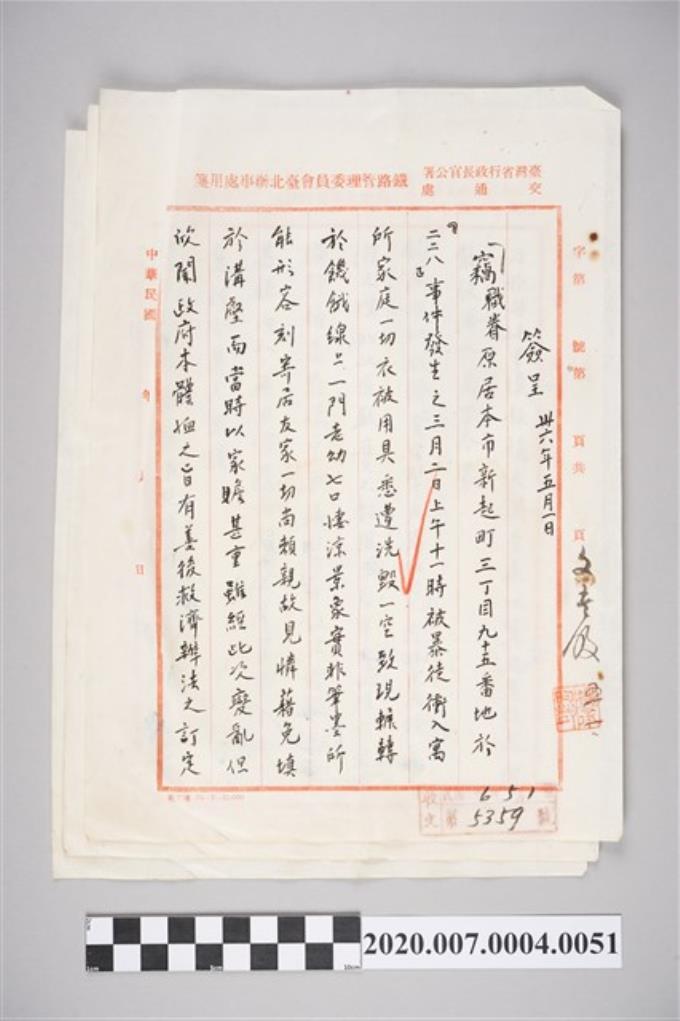 臺灣省行政長官公署
交通處
鐵路管理委員會臺北辦事處用箋
字第 號第 頁共 頁
簽呈 卅六年五月一日
竊職眷原居本市新起町三丁目九十五番地於
二二八事件發生之三月二日上午十一時被暴徒衝入寓
所家庭一切衣被用具悉遭洗毀一空致現輾轉
於饑餓線上一門老幼七口悽涼景象實非筆墨所
能形容刻寄居友家一切尚賴親故見憐藉免填
於溝壑而當時以家贍甚重雖經此次變亂但
欣聞政府本體恤之旨有善後救濟辦法之訂定
中華民國 年 月 日
收文
6 5 1
第 5359 號
2020.007.0004.0051
1cm 5cm 10cm